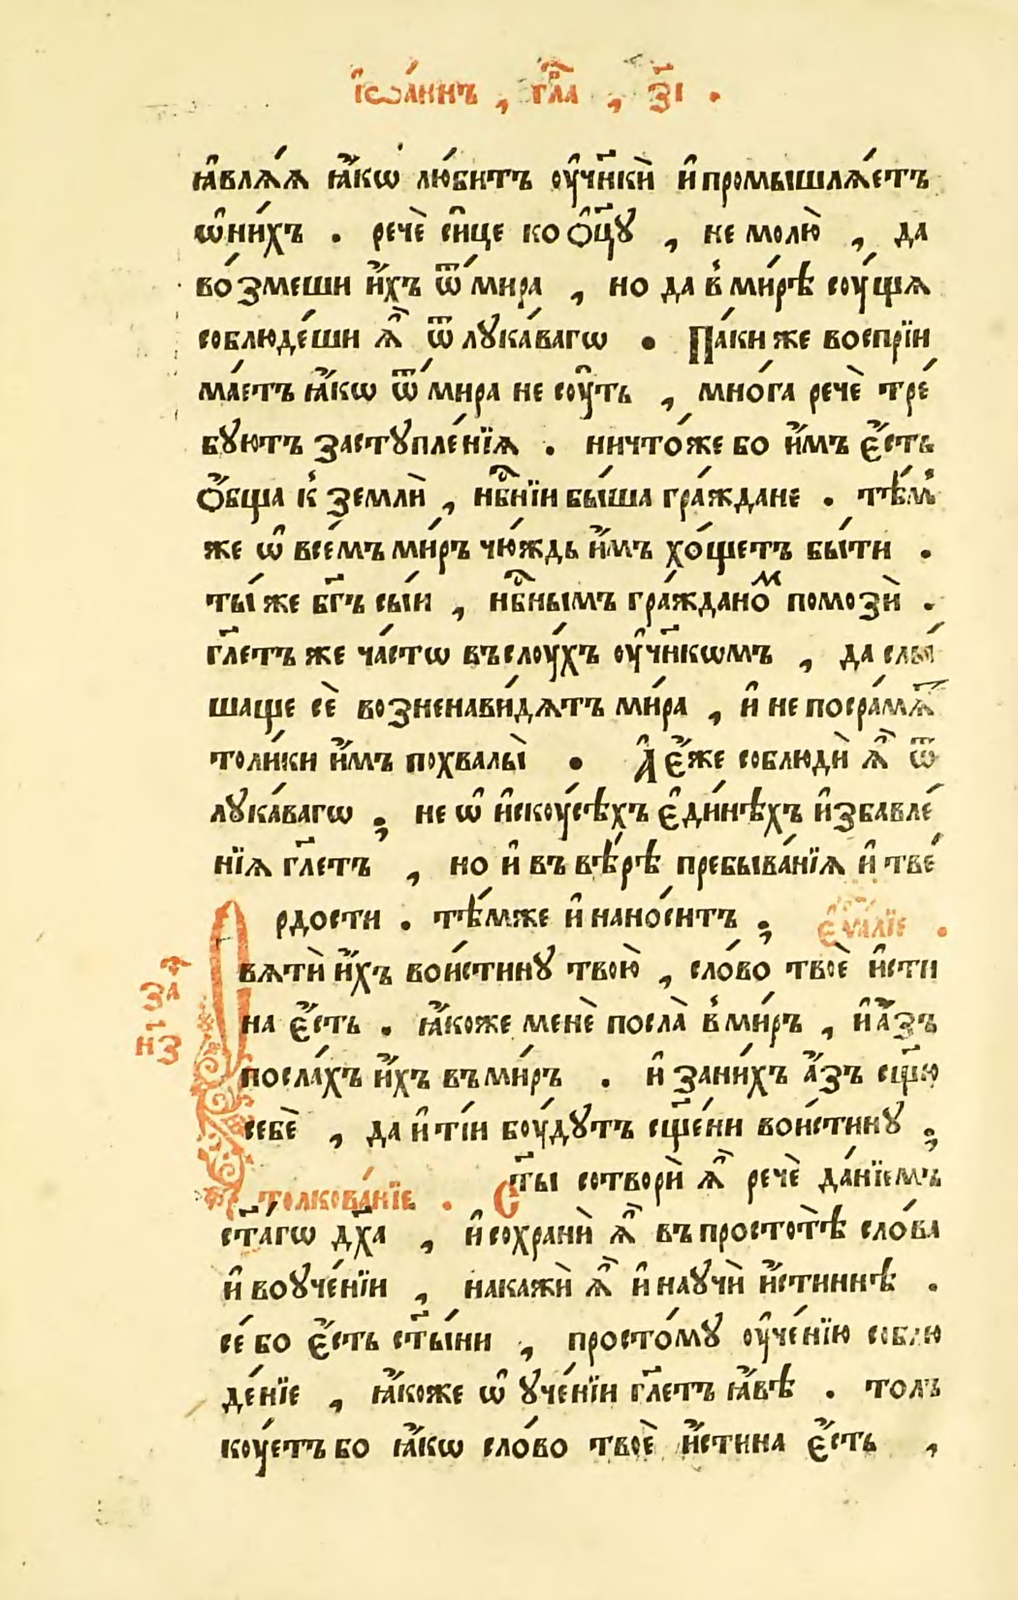 і҆ѡа́ннъ , гл҃а , з҃і .
ꙗ҆влѧ́ѧ ꙗ҆́кѡ лю́битъ ᲂу҆ч҃нкѝ и҆ промышлѧ́етъ
ѡ҆ ни́хъ . речѐ си́це ко ѻ҆ц҃ꙋ , не молю̀ , да
во́змеши и҆́хъ ѿ ми́ра , но да в̾ ми́рѣ сᲂу́щѧ
соблюде́ши ѧ҆̀ ѿ лꙋка́вагѡ . Па́ки же воспрїи
ма́етъ ꙗ҆́кѡ ѿ ми́ра не сᲂу́ть , мно́га речѐ тре́
бꙋютъ застꙋпле́нїѧ . ничто́же бо и҆́мъ є҆́сть
ѻ҆́бща к̾ землѝ , нб҃нїи бы́ша гра́ждане . тѣ́м̾
же ѡ҆ все́мъ ми́ръ чю́ждь и҆́мъ хо́щетъ бы́ти .
ты́ же бг҃ъ сы́и , нб҃нымъ гра́жданоⷨ помозѝ .
гл҃етъ же ча́стѡ въ слᲂу́хъ ᲂу҆ч҃нкѡмъ , да слы́
шаще сѐ возненави́дѧтъ ми́ра , и҆ не посра́мѧⷮ
толи́ки и҆́мъ похвалы̀ . А҆ є҆́же соблюдѝ ѧ҆̀ ѿ
лꙋка́вагѡ , не ѡ҆ и҆скᲂу́сѣхъ є҆ди́нѣхъ и҆збавле́
нїѧ гл҃етъ , но и҆ въ вѣ́рѣ пребыва́нїѧ и҆ тве́
рдости . тѣ́мже и҆ нано́ситъ ; є҆ѵа҃лїе .
вѧтѝ и҆́хъ вои́стинꙋ твою̀ , сло́во твоѐ и҆́сти
на є҆́сть . ꙗ҆́коже менѐ посла̀ в̾ ми́ръ , и҆ а҆́зъ
заⷱ҇
н҃з
посла́хъ и҆́хъ въ ми́ръ . и҆ за ни́хъ а҆́зъ сщ҃ю
себѐ , да и҆ ті́и бᲂу́дꙋтъ сщ҃е́ни вои́стинꙋ ;
толкова́нїе . Ст҃ы сотворѝ ѧ҆̀ речѐ да́нїемъ
ст҃а́гѡ дх҃а , и҆ сохранѝ ѧ҆̀ въ простотѣ̀ сло́ва
и҆ во ᲂуче́нїи , накажѝ ѧ҆̀ и҆ наꙋчѝ и҆́стиннѣ .
се́ бо є҆́сть ст҃ы́ни , просто́мꙋ ᲂу҆че́нїю соблю
де́нїе , ꙗ҆́коже ѡ҆ ꙋче́нїи гл҃етъ ꙗ҆́вѣ . толъ
кᲂу́етъ бо ꙗ҆́кѡ сло́во твоѐ и҆́стина є҆́сть ,